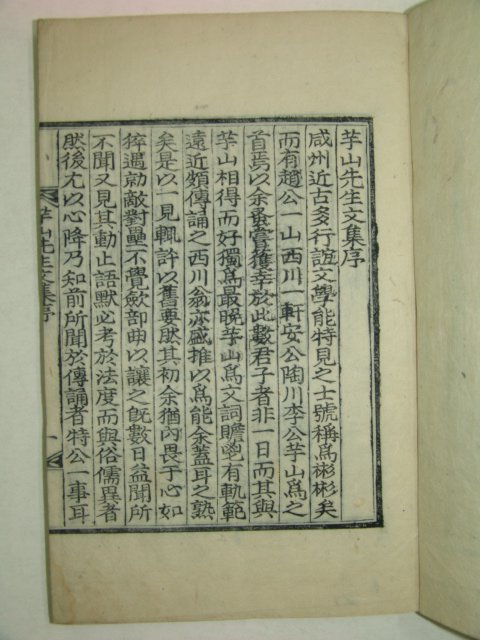 芋山先生文集序
咸州近古多行誼文學能特見之士號稱爲彬彬矣
而有趙公一山西川一軒安公陶川李公芋山爲之
首焉以余最嘗獲幸於此數君子者非一日而其與
芋山相得而好獨爲最晩芋山爲文詞贍鬯有軌範
遠近頗傳誦之西川翁亦盛推以爲能余蓋耳之熟
矣是以一見輒許以舊要然其初余猶內畏于心如
猝遇勍敵對壘不覺歛部曲以讓之旣數日益聞所
不聞又見其動止語默必考於法度而與俗儒異者
然後尤以心降乃知前所聞於傳誦者特公一事耳
芋山先生文集序
一